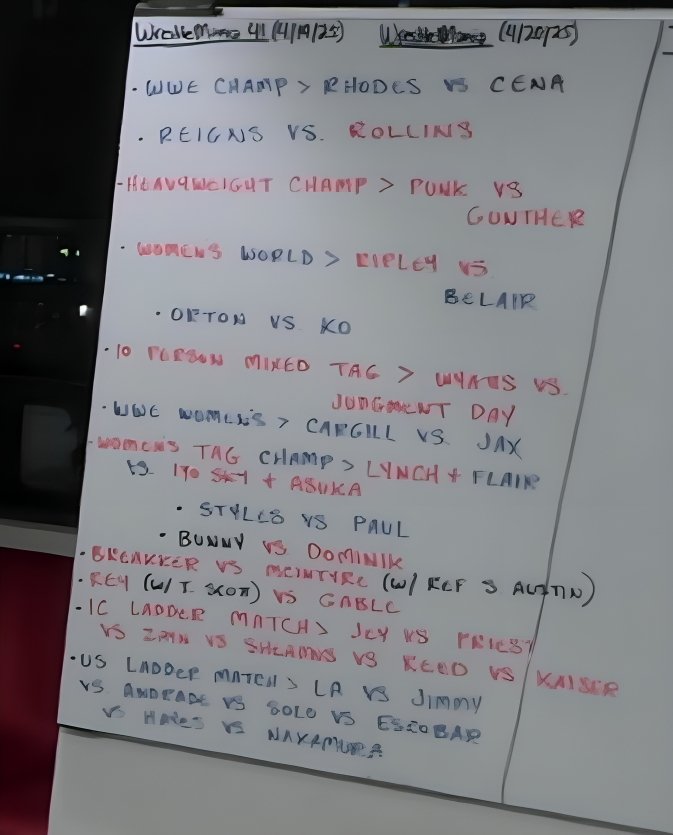 WrestleMania 41 (4/19/25) WrestleMania (4/20/25)
· WWE CHAMP > RHODES VS CENA
· REIGNS VS. ROLLINS
- HEAVYWEIGHT CHAMP > PUNK VS
GUNTHER
· WOMENS WORLD > RIPLEY VS
BELAIR
· ORTON VS KO
· 10 PERSON MIXED TAG > WYATTS VS.
JUDGMENT DAY
· WWE WOMEN'S > CARGILL VS. JAX
- WOMEN'S TAG CHAMP > LYNCH + FLAIR
VS. IYO SKY + ASUKA
· STYLES VS PAUL
· BUNNY VS DOMINIK
· BREAKKER VS MCINTYRE (W/ REF S AUSTIN)
· REY (W/ T. SCOTT) VS GABLE
· IC LADDER MATCH > JEY VS PRIEST
VS ZAYN VS SHEAMUS VS REED VS KAISER
· US LADDER MATCH > LA VS JIMMY
VS ANDRADE VS SOLO VS ESCOBAR
VS HAYES VS NAKAMURA